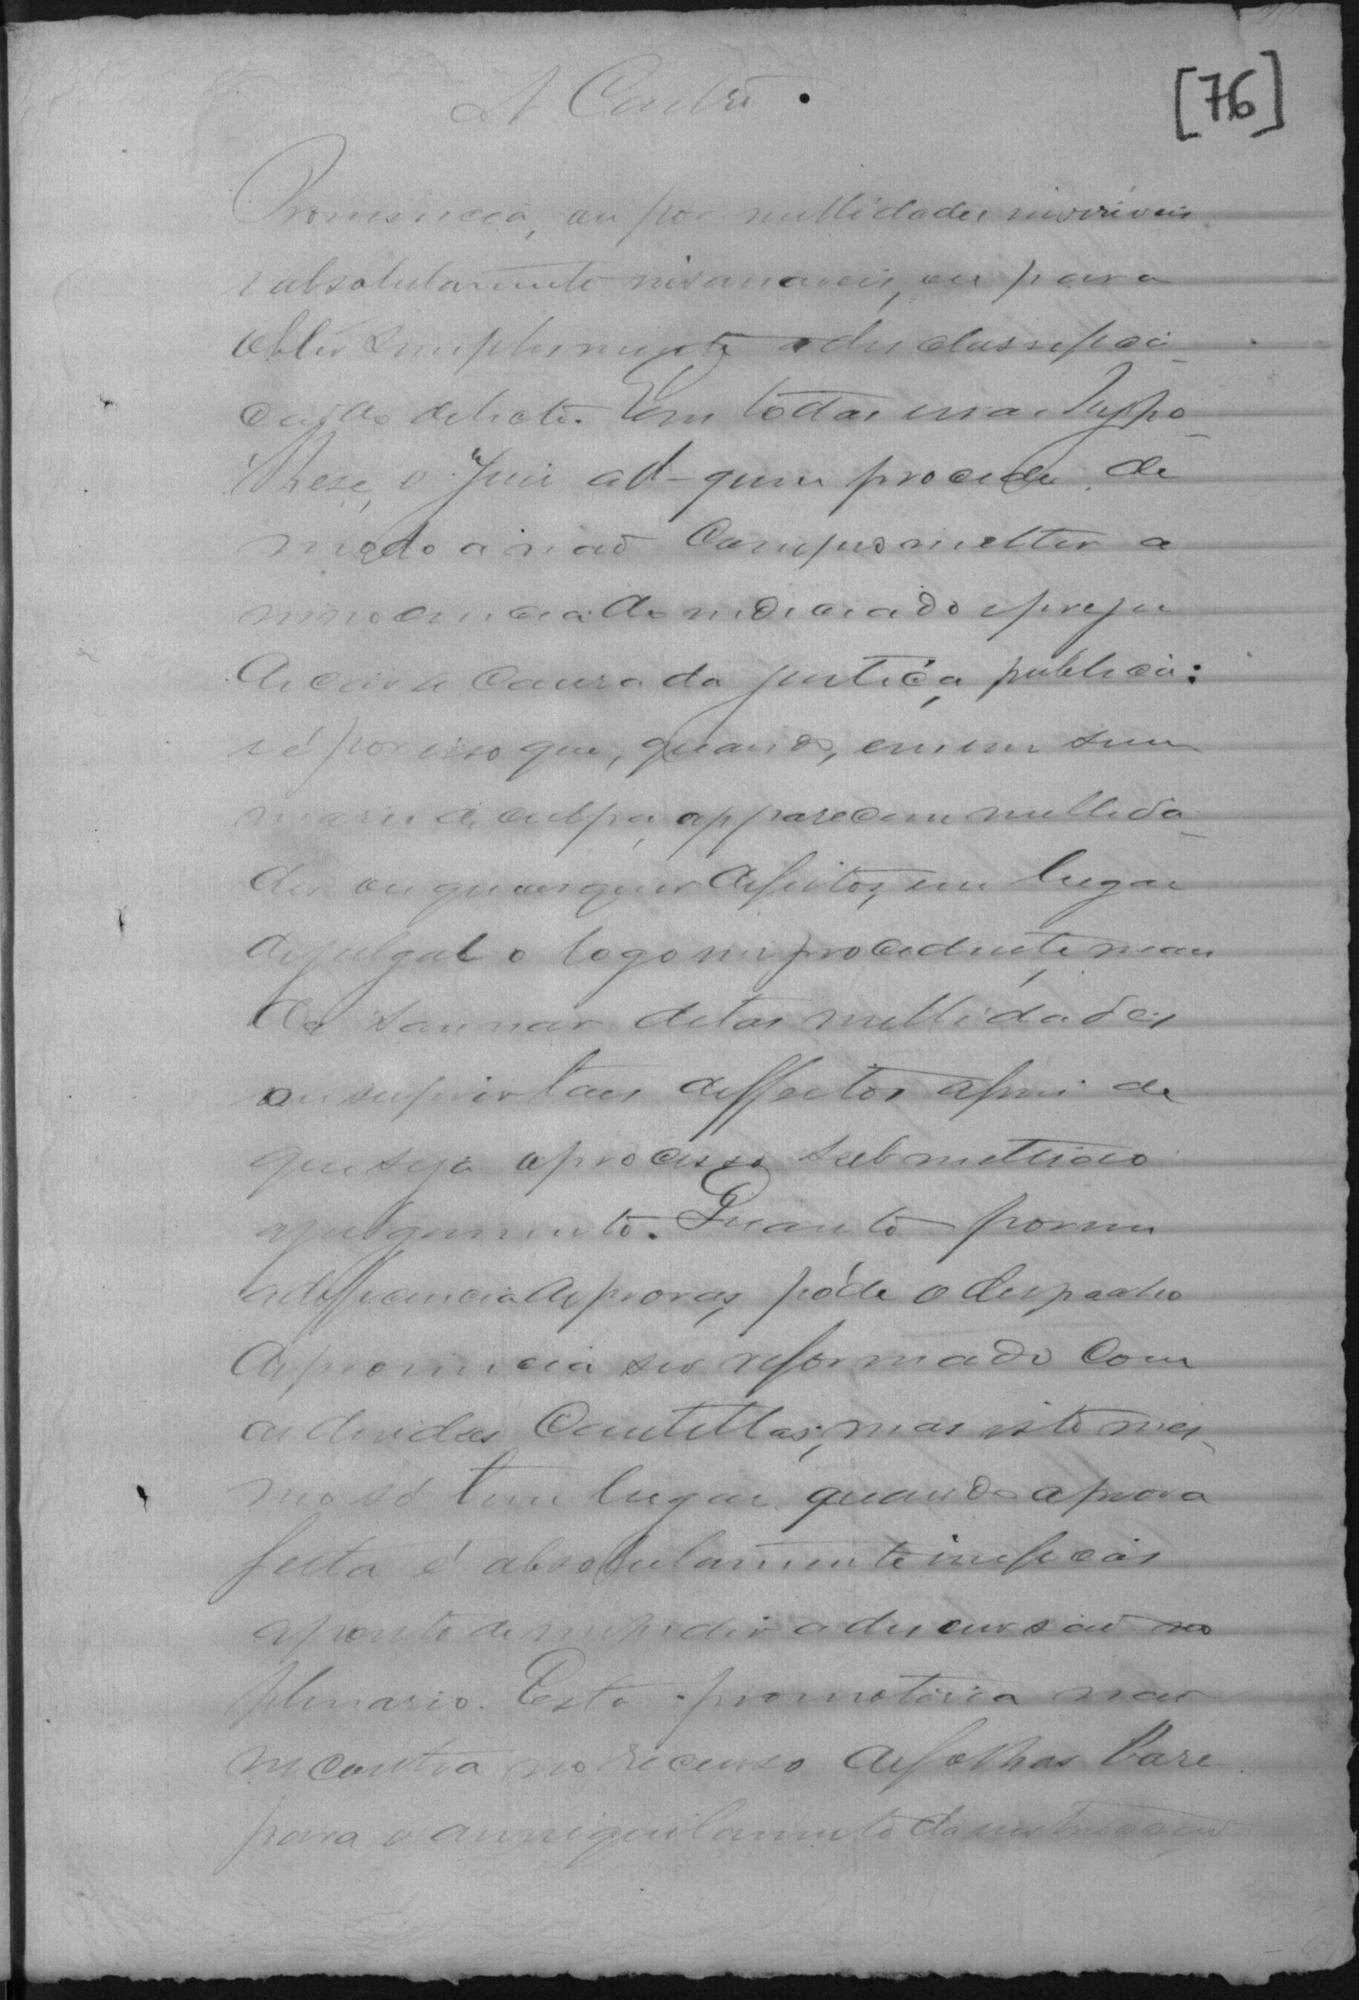 [76]
A Castro
Pronuncia, ou por nullidades inviaveis
e absolutamente insanaveis, ou para
obter simplesmente a desclassifica
ção do delicto. Em todas essas hypo-
theses, o Juiz ad-quem procede de
modo a não comprometter a
innocencia do indiciado e preju
dicar a causa da justiça publica:
e é por isso que, quando, em um sum
mario de culpa, apparecem nullida-
des ou quaesquer defeitos, em lugar
de julgal-o logo improcedente, man
da sannar ditas nullidades
ou suprir taes deffeitos afim de
que seja o processo submettido
a julgamento. Quanto porem
a defficiencia de provas, póde o despacho
de pronuncia ser reformado com
as devidas cautellas, mas isto mes-
mo só tem lugar quando a prova
feita é absolutamente inefficás
a ponto de impedir a discursão no
plenario. Esta promotoria não
incontra no recurso de folhas base
para o anniquilamento da instrucção